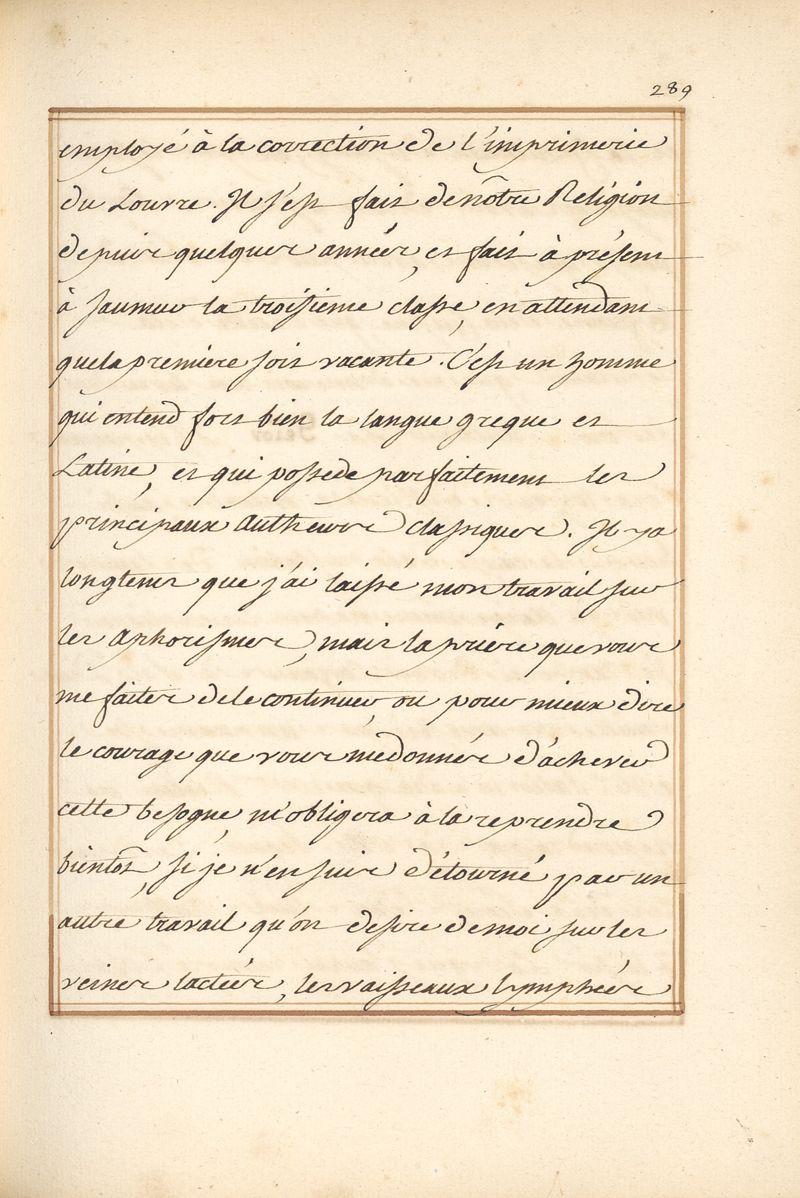 289
employé à la correction de l'imprimerie
du Louvre. Il s'est fait de nôtre Religion
depuis quelques années, et fait à présent
à Saumur la troisieme classe, en attendant
que la premiere soit vacante. C'est un homme
qui entend fort bien la langue greque et
Latine, et qui possede parfaitement les
principaux Autheurs classiques. Il y a
longtems que j'ai laissé mon travail sur
les Aphorismes, mais la prière que vous
me faites de le continuer, ou pour mieux dire
le courage que vous me donnés d'achever
cette besogne, m'obligera à la reprendre
bientost, si je n'en suis détourné par un
autre travail qu'on desire de moi sur les
veines lactées, les vaisseaux lymphées